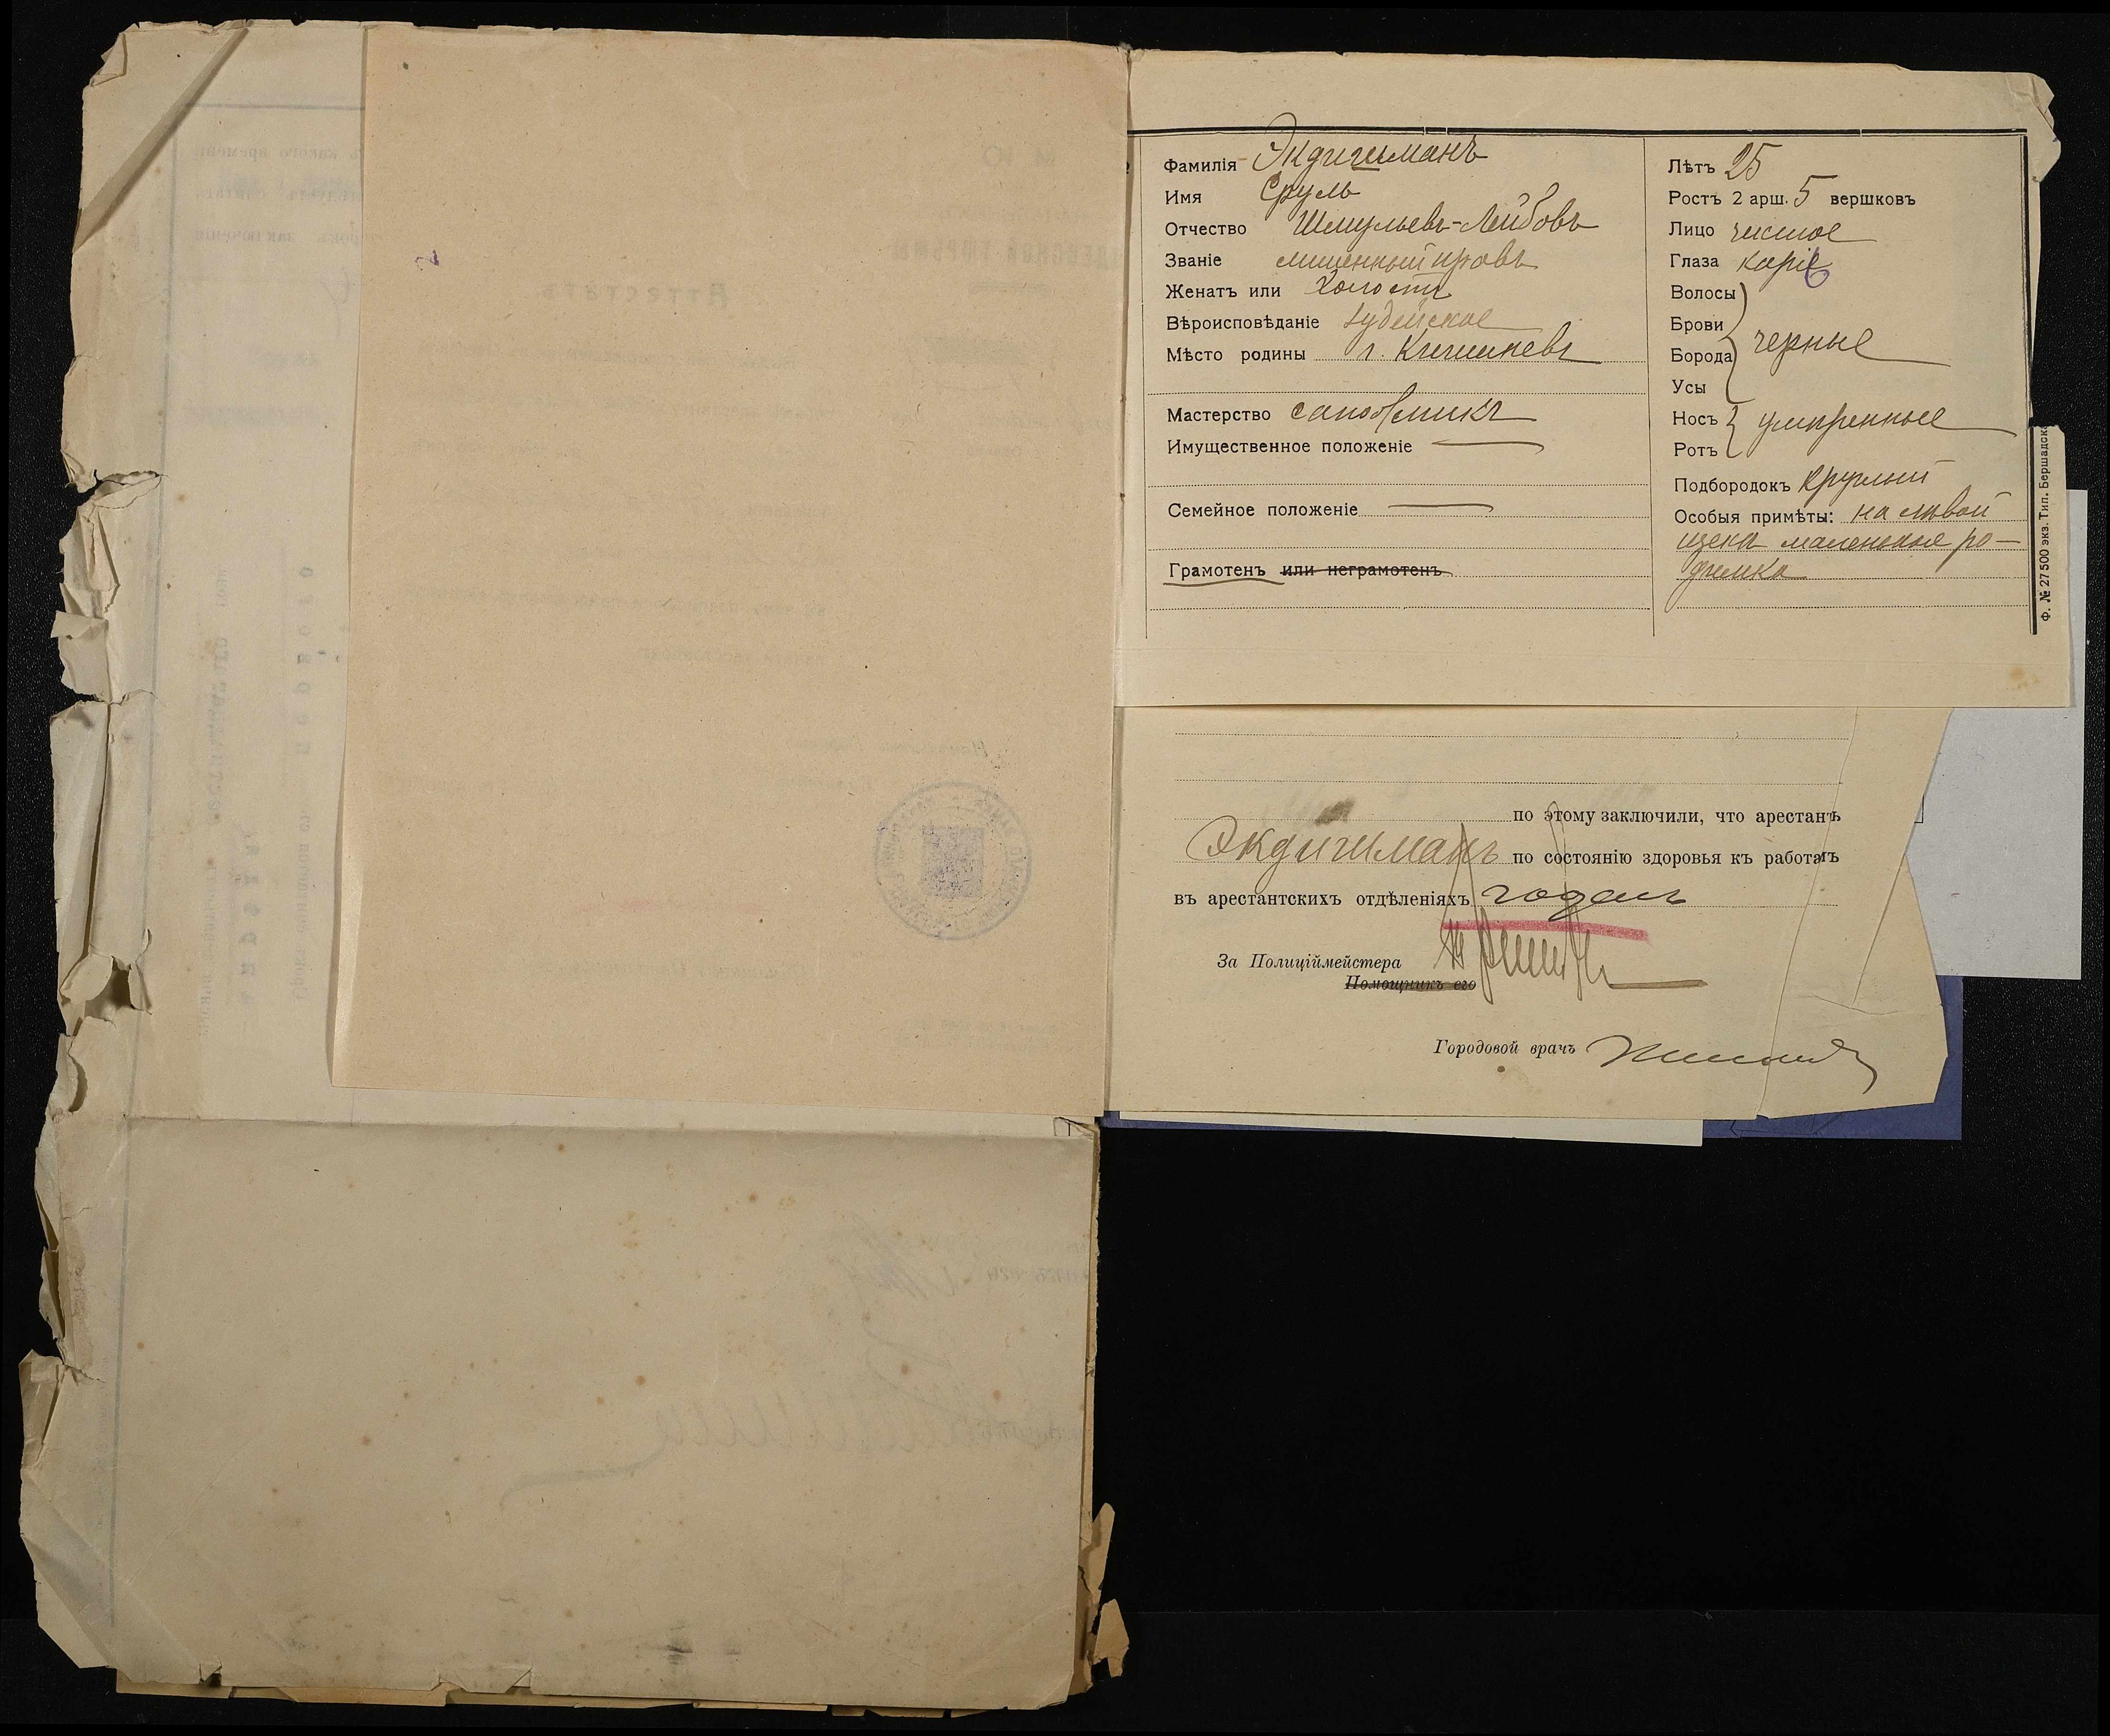 Фамилія Экдишманъ
Имя Сруль
Отчество Шмулевъ-Лейбовъ
Званіе лишенный правъ
Женатъ или Холостъ
Вѣроисповѣданіе Іудейское
Мѣсто родины г. Кишиневъ
Мастерство сапожникъ
Имущественное положеніе
Семейное положеніе
Грамотенъ или неграмотенъ
Лѣтъ 25
Ростъ 2 арш. 5 вершковъ
Лицо чистое
Глаза каріе
Волосы
Брови
Борода черные
Усы
Носъ умѣренные
Ротъ
Подбородокъ круглый
Особыя примѣты: на лѣвой
щекѣ маленькое ро-
димка
Ф. № 27 500 экз. Тип. Бершадск
по этому заключили, что арестантъ
Экдишманъ по состоянію здоровья къ работамъ
въ арестантскихъ отдѣленіяхъ годенъ
За Полиціймейстера
Помощникъ его
Городовой врачъ